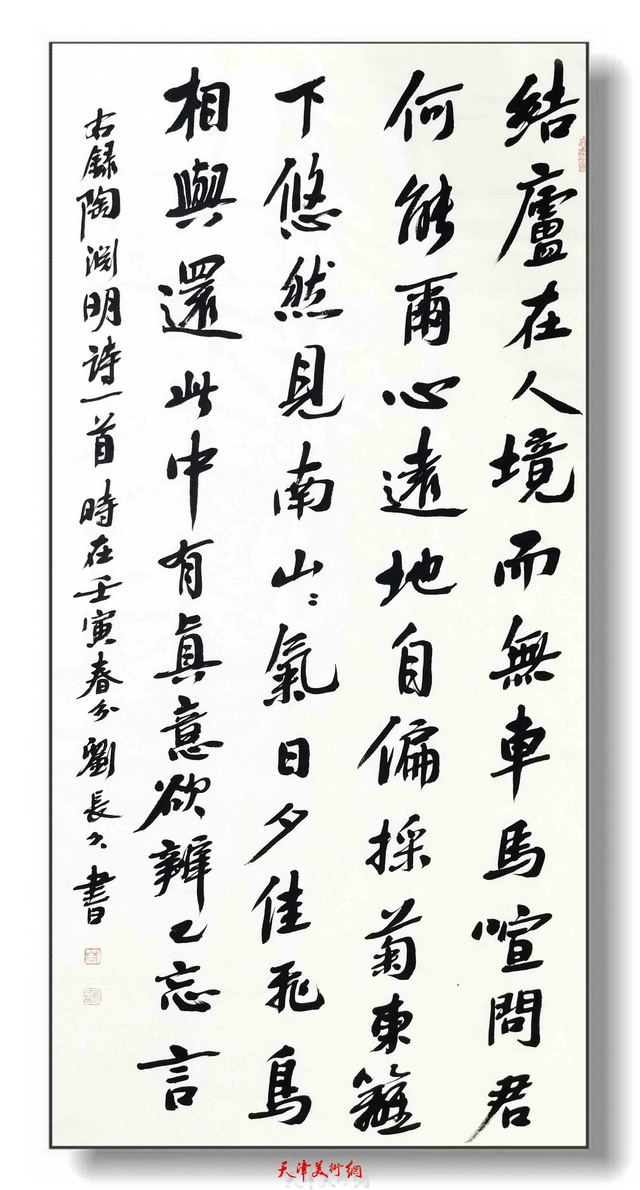 結廬在人境而無車馬喧問君
何能爾心遠地自偏採菊東籬
下悠然見南山〻氣日夕佳飛鳥
相與還此中有真意欲辨已忘言
右錄陶淵明詩一首時在壬寅春分劉長久書
天津美術網